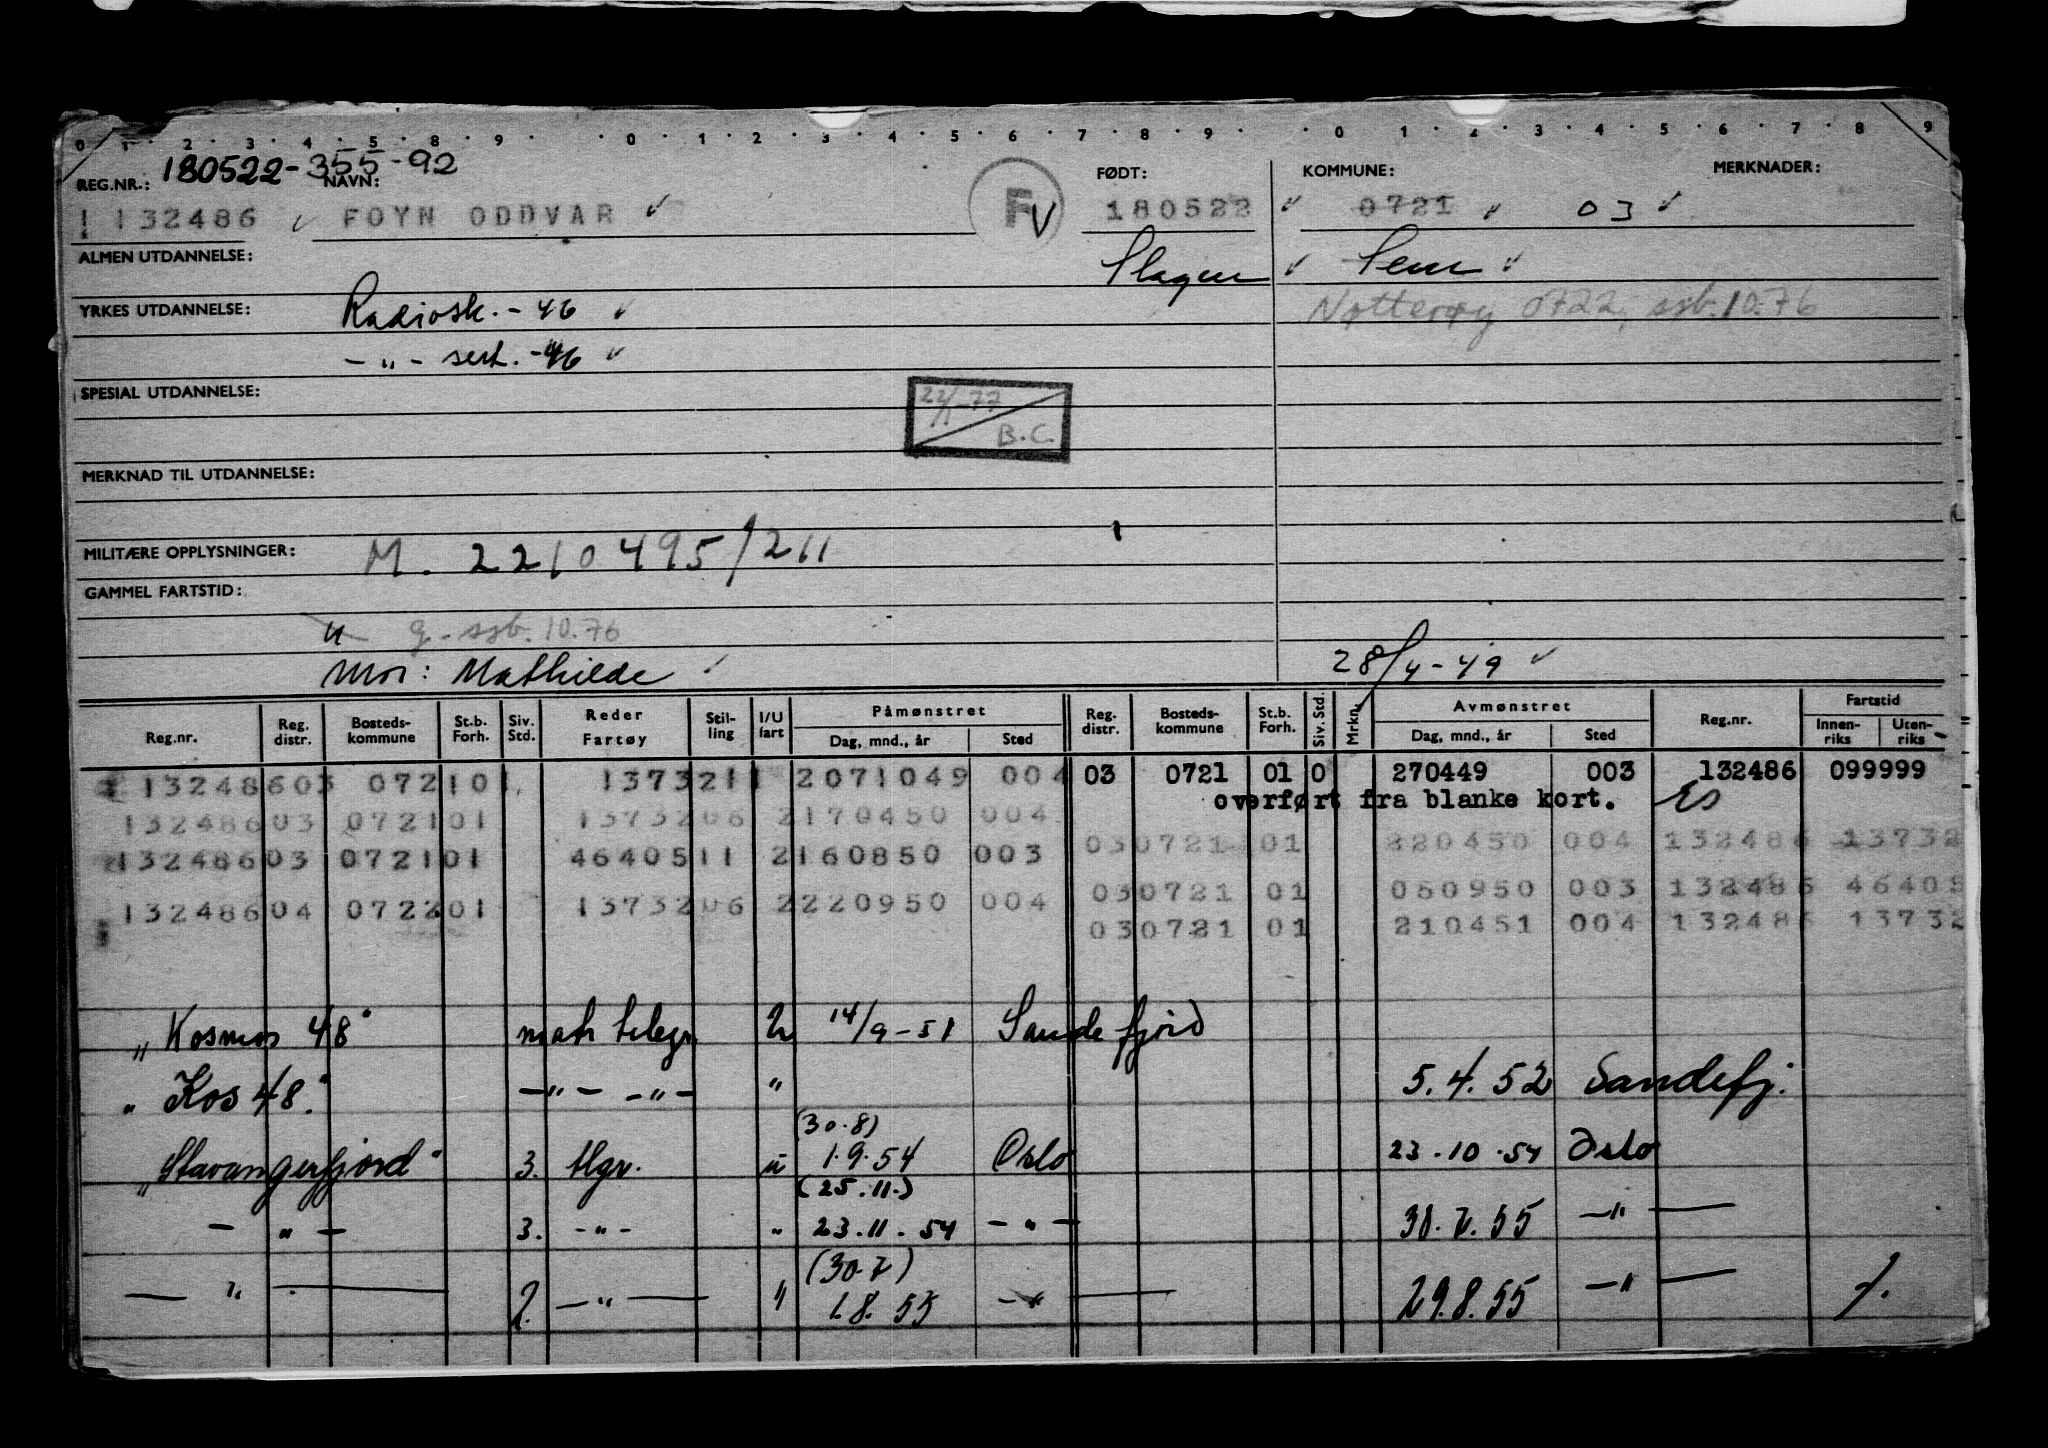 0 1 . 2 . 3 . 4 . 5 . 8 . 9 . 0 . 1 . 2 . 3 . 4 . 5 . 6 . 7 . 8 . 9 . . 0 . 1 . 2 . 3 . 4 . 5 . 6 . 7 . 8 . 9
REG.NR.: 180522-355-92 NAVN: FØDT: KOMMUNE: MERKNADER:
132486 FOYN ODDVAR F V 180522 0721 03
ALMEN UTDANNELSE: Slagen Sem
YRKES UTDANNELSE: Radiosk. - 46 Nøtterøy 0722, ssb. 10.76
- " - sert. - 46
SPESIAL UTDANNELSE:
22/11-77
B.C.
MERKNAD TIL UTDANNELSE:
MILITÆRE OPPLYSNINGER: M. 2210495/211
GAMMEL FARTSTID:
u g - ssb. 10.76
Mor: Mathilde 28/4-49
Reg.nr. Reg. distr. Bosteds-kommune St.b. Forh. Siv. Std. Reder Fartøy Stil-ling I/U fart Påmønstret Dag, mnd., år Sted Reg. distr. Bosteds-kommune St.b. Forh. Siv. Std. Mrkn. Avmønstret Dag, mnd., år Sted Reg.nr. Fartstid Innen-riks Uten-riks
132486 03 0721 01 13732 11 2 071049 004 03 0721 01 0 270449 003 132486 099999
overført fra blanke kort.
132486 03 0721 01 13732 06 2 170450 004
03 0721 01 220450 004 132486 13732
132486 03 0721 01 46405 11 2 160850 003
03 0721 01 050950 003 132486 46405
132486 04 0722 01 13732 06 2 220950 004
03 0721 01 210451 004 132486 13732
"Kosmos 48" telegr. 14/9-51 Sandefjord
"Kos 48" -"- -"- " 5.4.52 Sandefj.
(30.8)
"Stavangerfjord" 3. tlgr. u 1.9.54 Oslo 23.10.54 Oslo
(25.11.)
- " - 3. -"- " 23.11.54 - " - -"-
(30.7)
- " - 2. -"- " 1.8.55 -"- 29.8.55 -"-